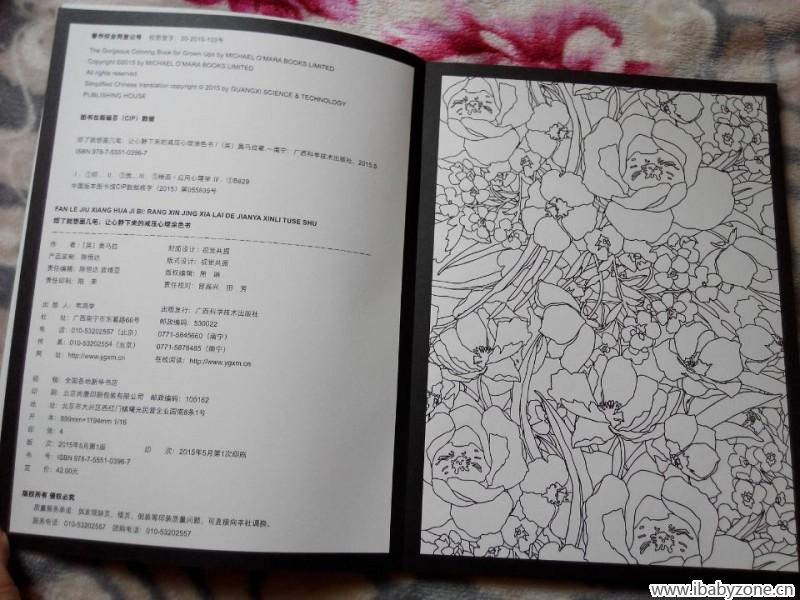 著作权合同登记号 桂图登字：20-2015-103号
The Gorgeous Coloring Book for Grown Ups by MICHAEL O'MARA BOOKS LIMITED
Copyright ©2015 by MICHAEL O'MARA BOOKS LIMITED
All rights reserved.
Simplified Chinese translation copyright © 2015 by GUANGXI SCIENCE & TECHNOLOGY
PUBLISHING HOUSE
图书在版编目（CIP）数据
烦了就想画几笔：让心静下来的减压心理涂色书 /（英）奥马拉著. – 南宁：广西科学技术出版社，2015.5
ISBN 978-7-5551-0396-7
Ⅰ. ①烦… Ⅱ. ①奥… Ⅲ. ①绘画－应用心理学 Ⅳ. ①B829
中国版本图书馆CIP数据核字（2015）第055839号
FAN LE JIU XIANG HUA JI BI: RANG XIN JING XIA LAI DE JIANYA XINLI TUSE SHU
烦了就想画几笔：让心静下来的减压心理涂色书
作 者：[英] 奥马拉 封面设计：视觉共振
产品监制：陈恒达 版式设计：视觉共振
责任编辑：陈恒达 版权编辑：周 琳
责任印制：陆 弟 责任校对：曾高兴 田 芳
出 版 人：韦鸿学 出版发行：广西科学技术出版社
社 址：广西南宁市东葛路66号 邮政编码：530022
电 话：010-53202557（北京） 0771-5845660（南宁）
传 真：010-53202554（北京） 0771-5878485（南宁）
网 址：http://www.ygxm.cn 在线阅读：http://www.ygxm.cn
经 销：全国各地新华书店
印 刷：北京尚唐印刷包装有限公司 邮政编码：100162
地 址：北京市大兴区西红门镇曙光民营企业园南8条1号
开 本：889mm×1194mm 1/16
印 张：4
版 次：2015年5月第1版 印 次：2015年5月第1次印刷
书 号：ISBN 978-7-5551-0396-7
定 价：42.00元
版权所有 侵权必究
质量服务承诺：如发现缺页、错页、倒装等印装质量问题，可直接向本社调换。
服务电话：010-53202557 团购电话：010-53202557
www.ibabyzone.cn